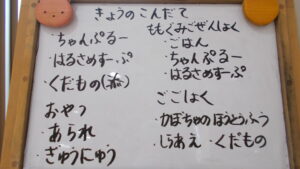 きょうのこんだて
・ちゃんぷるー
・はるさめすーぷ
・くだもの(
おやつ
・あられ
・ぎゅうにゅう
ももぐみごぜんしょく
・ごはん
・ちゃんぷるー
・はるさめすーぷ
ごごしょく
・かぼちゃのほうとうふう
・しらあえ ・くだもの